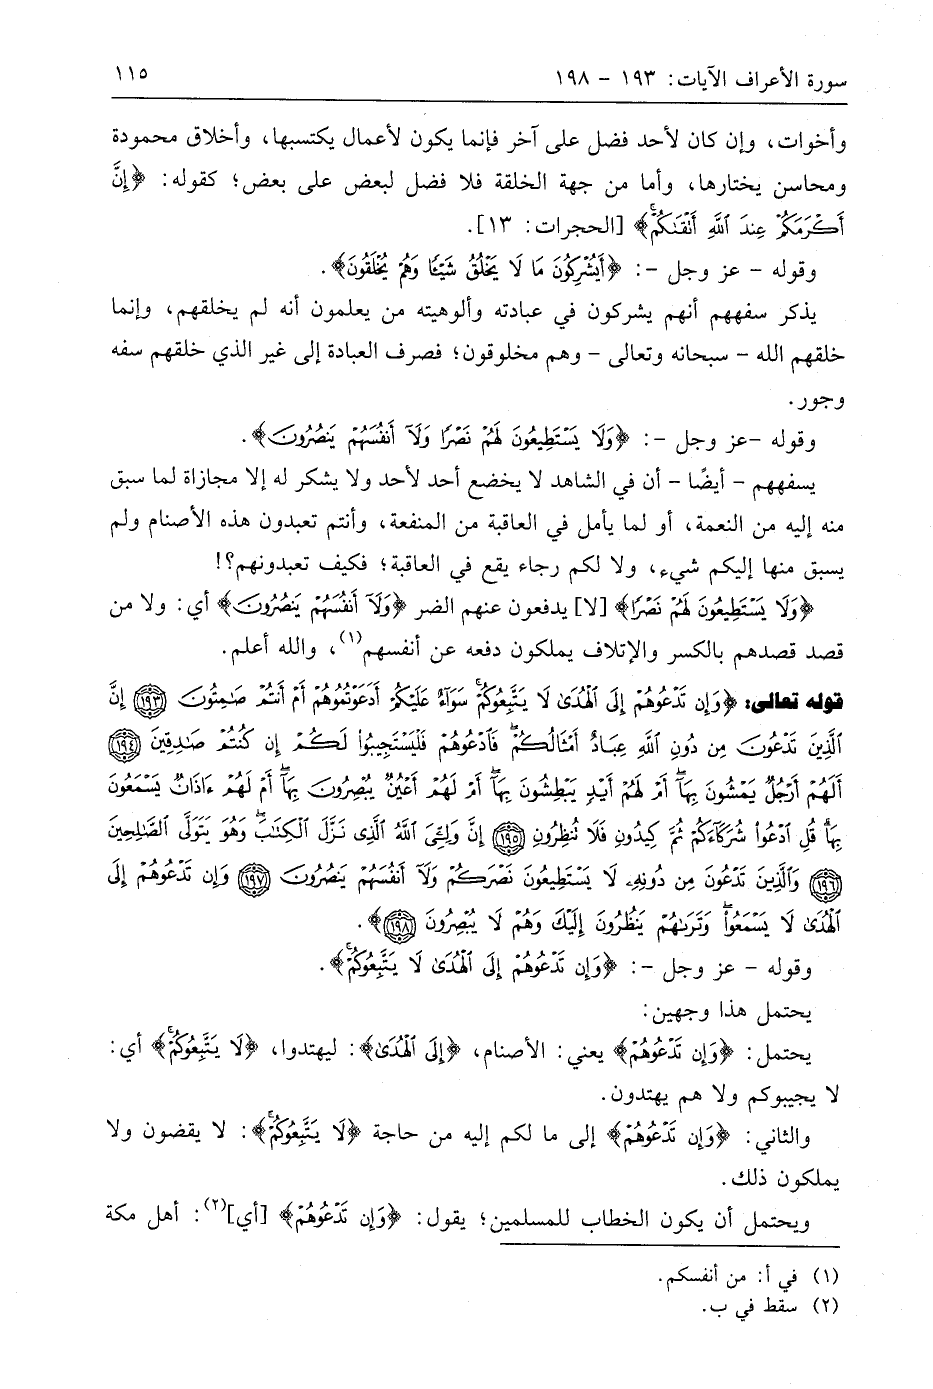 سورة الأعراف الآيات: ١٩٣ - ١٩٨ ١١٥
وأخوات، وإن كان لأحد فضل على آخر فإنما يكون لأعمال يكتسبها، وأخلاق محمودة
ومحاسن يختارها، وأما من جهة الخلقة فلا فضل لبعض على بعض؛ كقوله: ﴿إِنَّ
أَكْرَمَكُمْ عِندَ ٱللَّهِ أَتْقَىٰكُمْ﴾ [الحجرات: ١٣].
وقوله - عز وجل -: ﴿أَيُشْرِكُونَ مَا لَا يَخْلُقُ شَيْـًٔا وَهُمْ يُخْلَقُونَ﴾.
يذكر سفههم أنهم يشركون في عبادته وألوهيته من يعلمون أنه لم يخلقهم، وإنما
خلقهم الله - سبحانه وتعالى - وهم مخلوقون؛ فصرف العبادة إلى غير الذي خلقهم سفه
وجور.
وقوله -عز وجل -: ﴿وَلَا يَسْتَطِيعُونَ لَهُمْ نَصْرًا وَلَآ أَنفُسَهُمْ يَنصُرُونَ﴾.
يسفههم - أيضًا - أن في الشاهد لا يخضع أحد لأحد ولا يشكر له إلا مجازاة لما سبق
منه إليه من النعمة، أو لما يأمل في العاقبة من المنفعة، وأنتم تعبدون هذه الأصنام ولم
يسبق منها إليكم شيء، ولا لكم رجاء يقع في العاقبة؛ فكيف تعبدونهم؟!
﴿وَلَا يَسْتَطِيعُونَ لَهُمْ نَصْرًا﴾ [لا] يدفعون عنهم الضر ﴿وَلَآ أَنفُسَهُمْ يَنصُرُونَ﴾ أي: ولا من
قصد قصدهم بالكسر والإتلاف يملكون دفعه عن أنفسهم(١)، والله أعلم.
قوله تعالى: ﴿وَإِن تَدْعُوهُمْ إِلَى ٱلْهُدَىٰ لَا يَتَّبِعُوكُمْ سَوَآءٌ عَلَيْكُمْ أَدَعَوْتُمُوهُمْ أَمْ أَنتُمْ صَـٰمِتُونَ ١٩٣ إِنَّ
ٱلَّذِينَ تَدْعُونَ مِن دُونِ ٱللَّهِ عِبَادٌ أَمْثَالُكُمْ فَٱدْعُوهُمْ فَلْيَسْتَجِيبُوا۟ لَكُمْ إِن كُنتُمْ صَـٰدِقِينَ ١٩٤
أَلَهُمْ أَرْجُلٌ يَمْشُونَ بِهَآ أَمْ لَهُمْ أَيْدٍ يَبْطِشُونَ بِهَآ أَمْ لَهُمْ أَعْيُنٌ يُبْصِرُونَ بِهَآ أَمْ لَهُمْ ءَاذَانٌ يَسْمَعُونَ
بِهَا قُلِ ٱدْعُوا۟ شُرَكَآءَكُمْ ثُمَّ كِيدُونِ فَلَا تُنظِرُونِ ١٩٥ إِنَّ وَلِـِّۧىَ ٱللَّهُ ٱلَّذِى نَزَّلَ ٱلْكِتَـٰبَ وَهُوَ يَتَوَلَّى ٱلصَّـٰلِحِينَ
١٩٦ وَٱلَّذِينَ تَدْعُونَ مِن دُونِهِۦ لَا يَسْتَطِيعُونَ نَصْرَكُمْ وَلَآ أَنفُسَهُمْ يَنصُرُونَ ١٩٧ وَإِن تَدْعُوهُمْ إِلَى
ٱلْهُدَىٰ لَا يَسْمَعُوا۟ وَتَرَىٰهُمْ يَنظُرُونَ إِلَيْكَ وَهُمْ لَا يُبْصِرُونَ ١٩٨﴾.
وقوله - عز وجل -: ﴿وَإِن تَدْعُوهُمْ إِلَى ٱلْهُدَىٰ لَا يَتَّبِعُوكُمْ﴾.
يحتمل هذا وجهين:
يحتمل: ﴿وَإِن تَدْعُوهُمْ﴾ يعني: الأصنام، ﴿إِلَى ٱلْهُدَىٰ﴾: ليهتدوا، ﴿لَا يَتَّبِعُوكُمْ﴾ أي:
لا يجيبوكم ولا هم يهتدون.
والثاني: ﴿وَإِن تَدْعُوهُمْ﴾ إلى ما لكم إليه من حاجة ﴿لَا يَتَّبِعُوكُمْ﴾: لا يقضون ولا
يملكون ذلك.
ويحتمل أن يكون الخطاب للمسلمين؛ يقول: ﴿وَإِن تَدْعُوهُمْ﴾ [أي](٢): أهل مكة
(١) في أ: من أنفسكم.
(٢) سقط في ب.